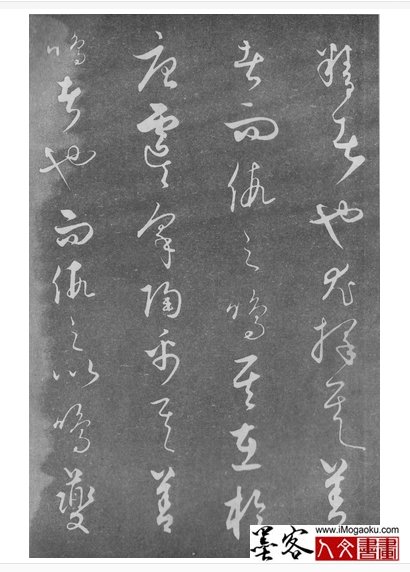 精者也尤擇其善
者而假之鳴其在於
唐虞皋陶禹其善
鳴者也而假之以鳴夔
www.iMogaoku.com
墨客人文書畫